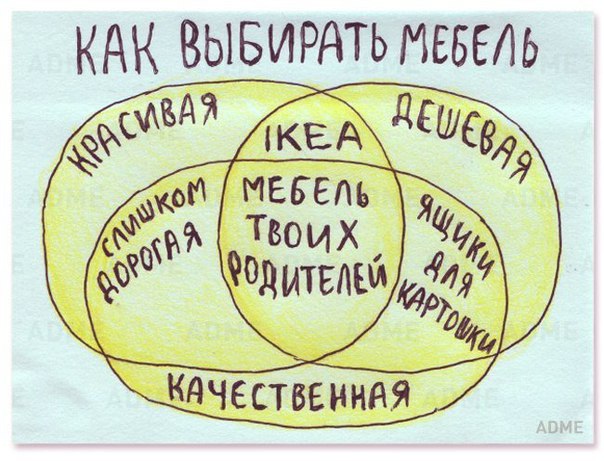 КАК ВЫБИРАТЬ МЕБЕЛЬ
КРАСИВАЯ
ДЕШЕВАЯ
IKEA
СЛИШКОМ
ДОРОГАЯ
МЕБЕЛЬ
ТВОИХ
РОДИТЕЛЕЙ
ЯЩИКИ
ДЛЯ
КАРТОШКИ
КАЧЕСТВЕННАЯ
ADME